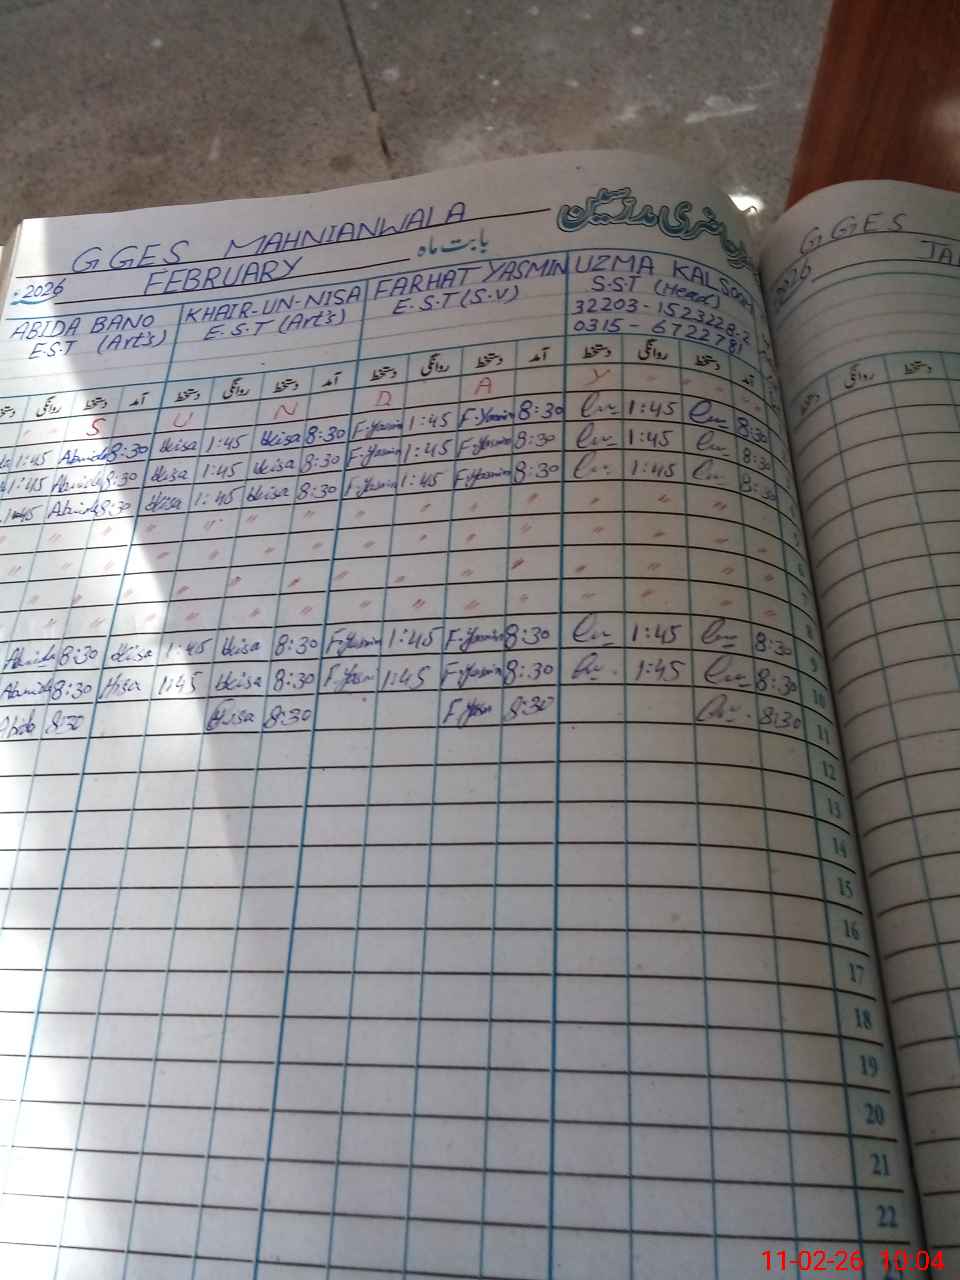 حاضری مدرسین
GGES MAHNIANWALA
بابت ماہ
FEBRUARY
2026
ABIDA BANO
E.S.T (Art's)
KHAIR-UN-NISA
E.S.T (Art's)
FARHAT YASMIN
E.S.T (S.V)
UZMA KALSOOM
S.S.T (Head)
32203-1523228-2
0315-6722781
روانگی دستخط آمد دستخط روانگی دستخط آمد دستخط روانگی دستخط آمد دستخط روانگی دستخط آمد
S U N D A Y
1:45 Abida 8:30 Nisa 1:45 Nisa 8:30 F-Yasmin 1:45 F-Yasmin 8:30 1:45 8:30
1:45 Abida 8:30 Nisa 1:45 Nisa 8:30 F-Yasmin 1:45 F-Yasmin 8:30 1:45 8:30
1:45 Abida 8:30 Nisa 1:45 Nisa 8:30 F-Yasmin 1:45 F-Yasmin 8:30 1:45 8:30
" " " " " " " " " " " " " " 5
" " " " " " " " " " " " " " 6
" " " " " " " " " " " " " " 7
" " " " " " " " " " " " " " 8
Abida 8:30 Nisa 1:45 Nisa 8:30 F-Yasmin 1:45 F-Yasmin 8:30 1:45 8:30 9
Abida 8:30 Nisa 1:45 Nisa 8:30 F-Yasmin 1:45 F-Yasmin 8:30 1:45 8:30 10
8:30 Nisa 8:30 F-Yasmin 8:30 8:30 11
12
13
14
15
16
17
18
19
20
21
22
GGES
2026
JA
روانگی دستخط
11-02-26 10:04